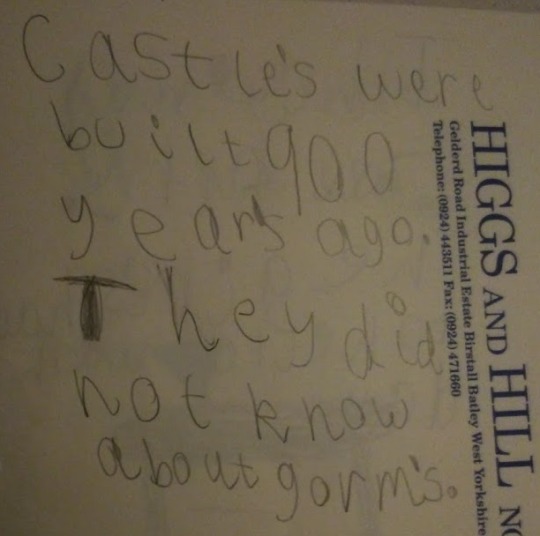 Castle's were
built 900
years ago.
They did
not know
about gorm's.
HIGGS AND HILL NO
Gelderd Road Industrial Estate Birstall Batley West Yorkshire
Telephone: (0924) 443511 Fax: (0924) 471660